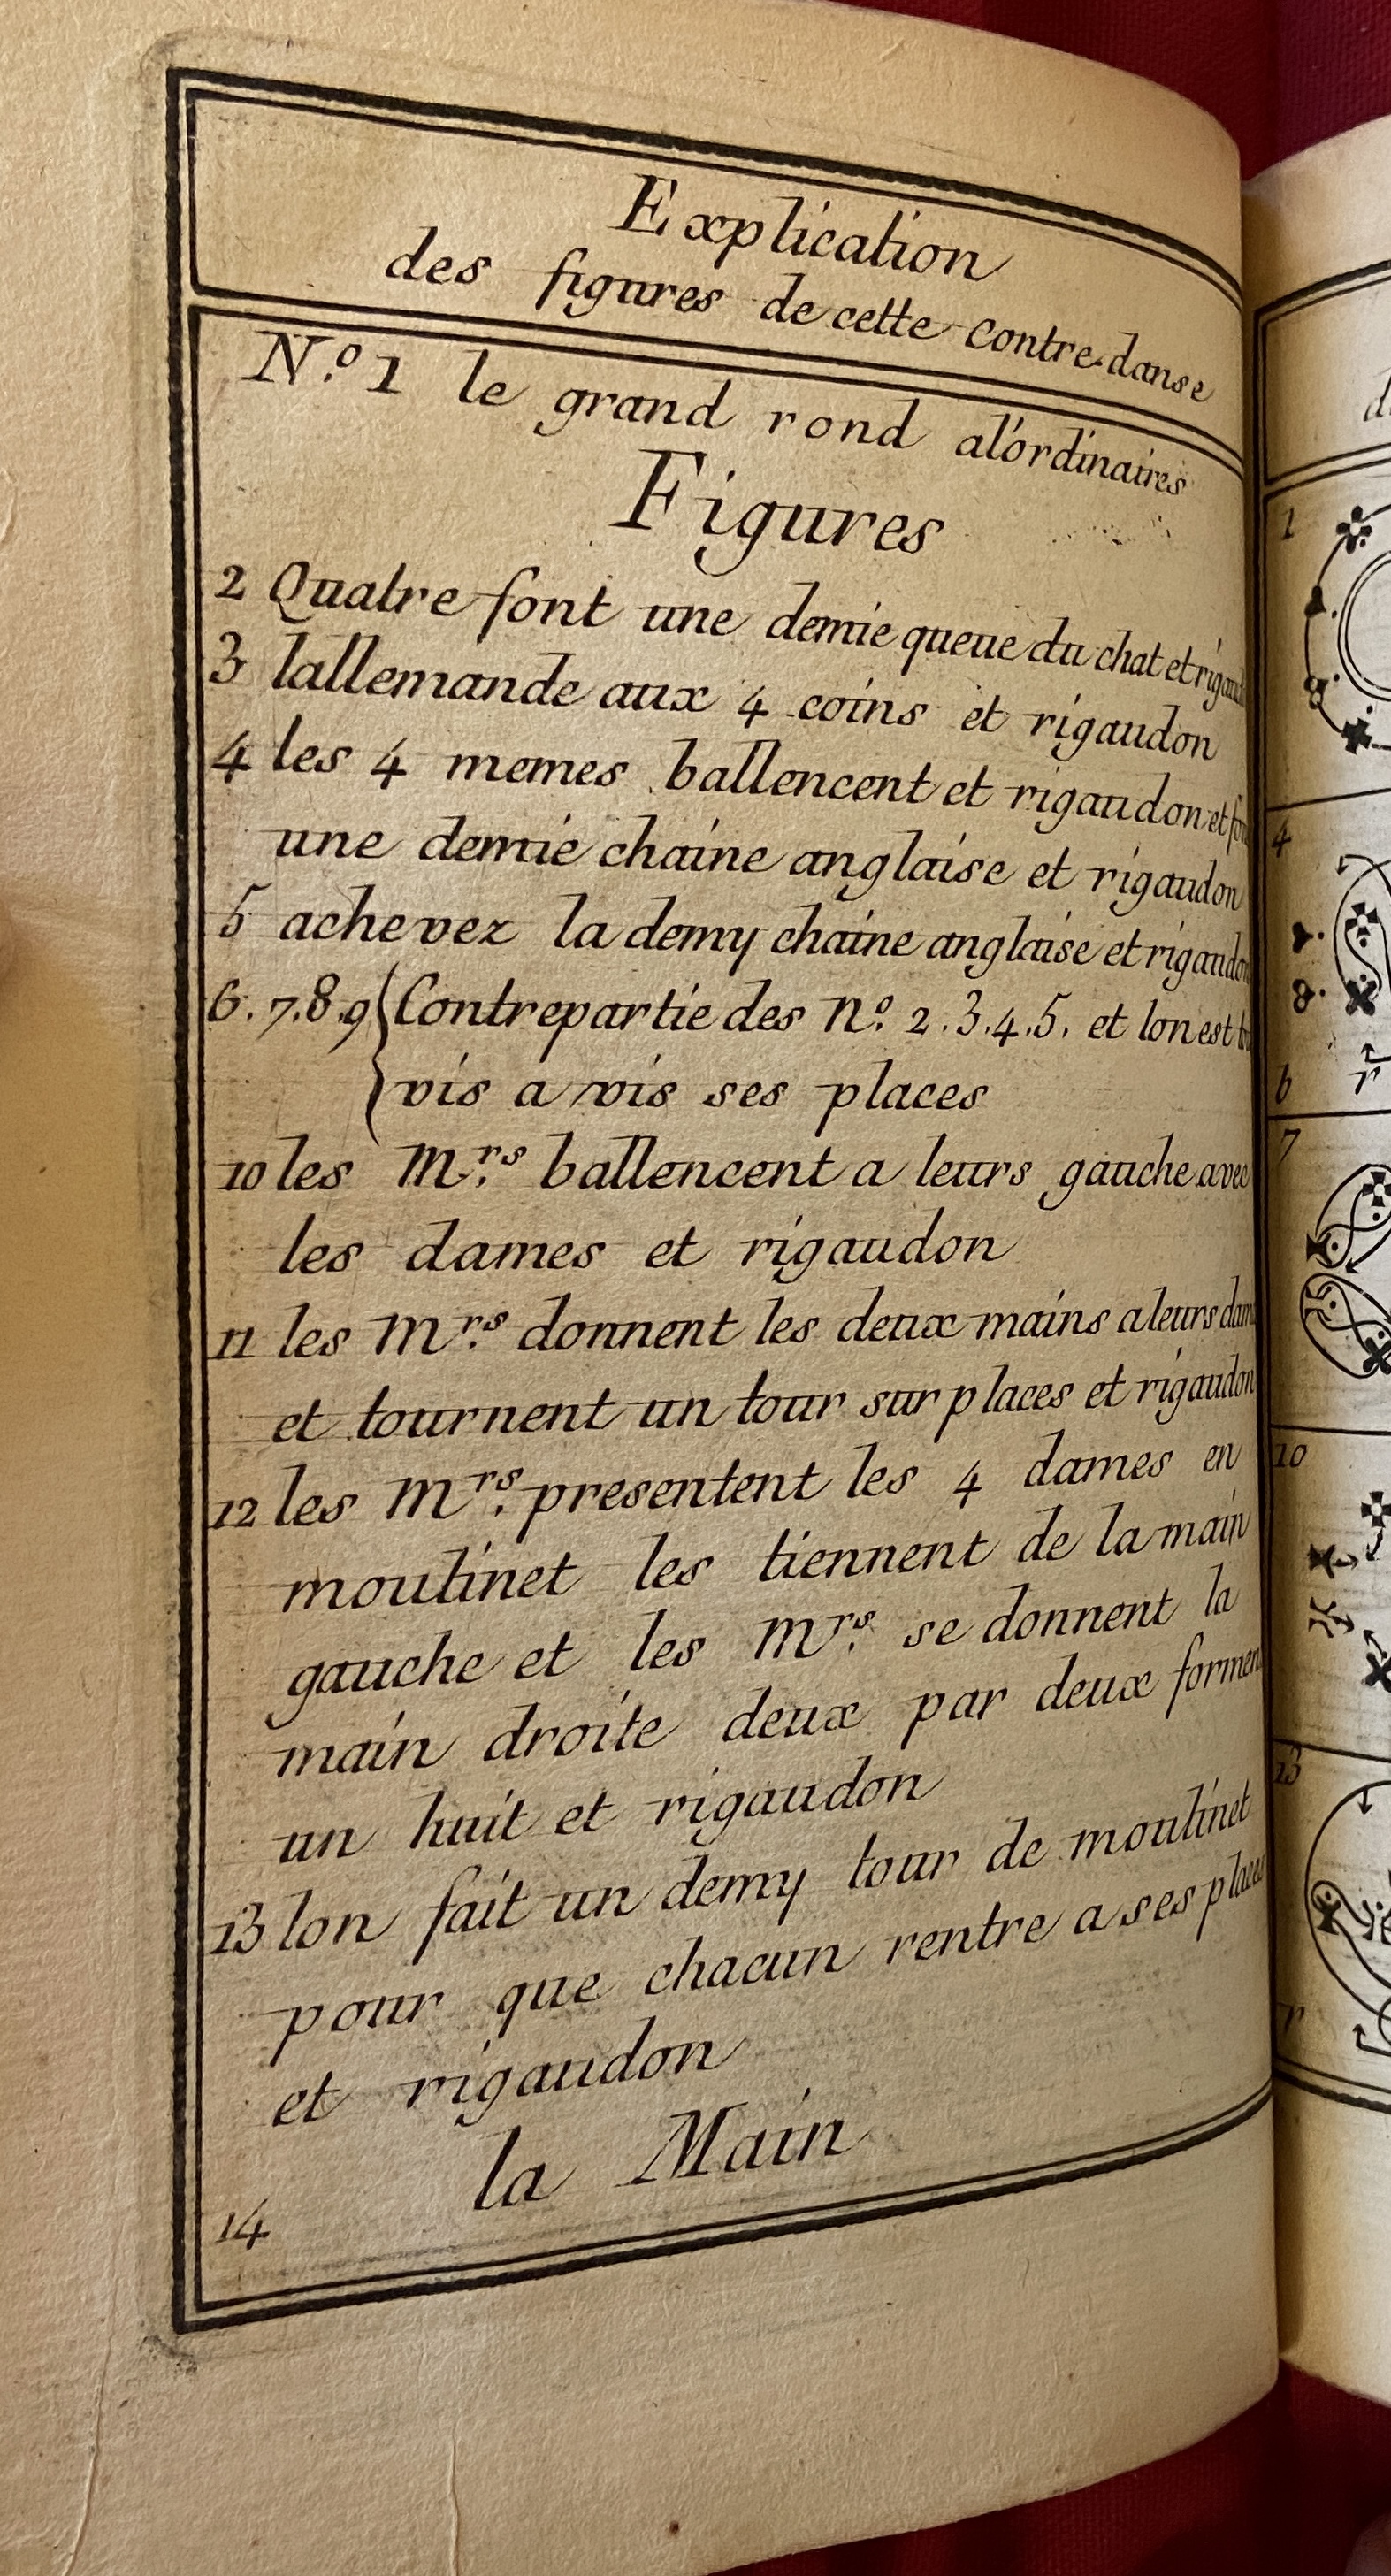 Explication
des figures de cette contre-danse
N.º 1 le grand rond al'ordinaires
Figures
2 Quatre font une demie queue du chat et
3 lallemande aux 4 coins et rigaudon
4 les 4 memes ballencent et rigaudon et
une demie chaine anglaise et rigaudon
5 achevez la demy chaine anglaise et rigaudon
6. 7. 8. 9 Contrepartie des N.º 2. 3. 4. 5. et lon est
vis a vis ses places
10 les M.rs ballencent a leurs gauche avec
les dames et rigaudon
11 les M.rs donnent les deux mains a leurs
et tournent un tour sur places et rigaudon
12 les M.rs presentent les 4 dames en
moulinet les tiennent de la main
gauche et les M.rs se donnent la
main droite deux par deux
un huit et rigaudon
13 lon fait un demy tour de moulinet
pour que chacun rentre a ses places
et rigaudon
la Main
14
1
4
6
r
7
10
13
r